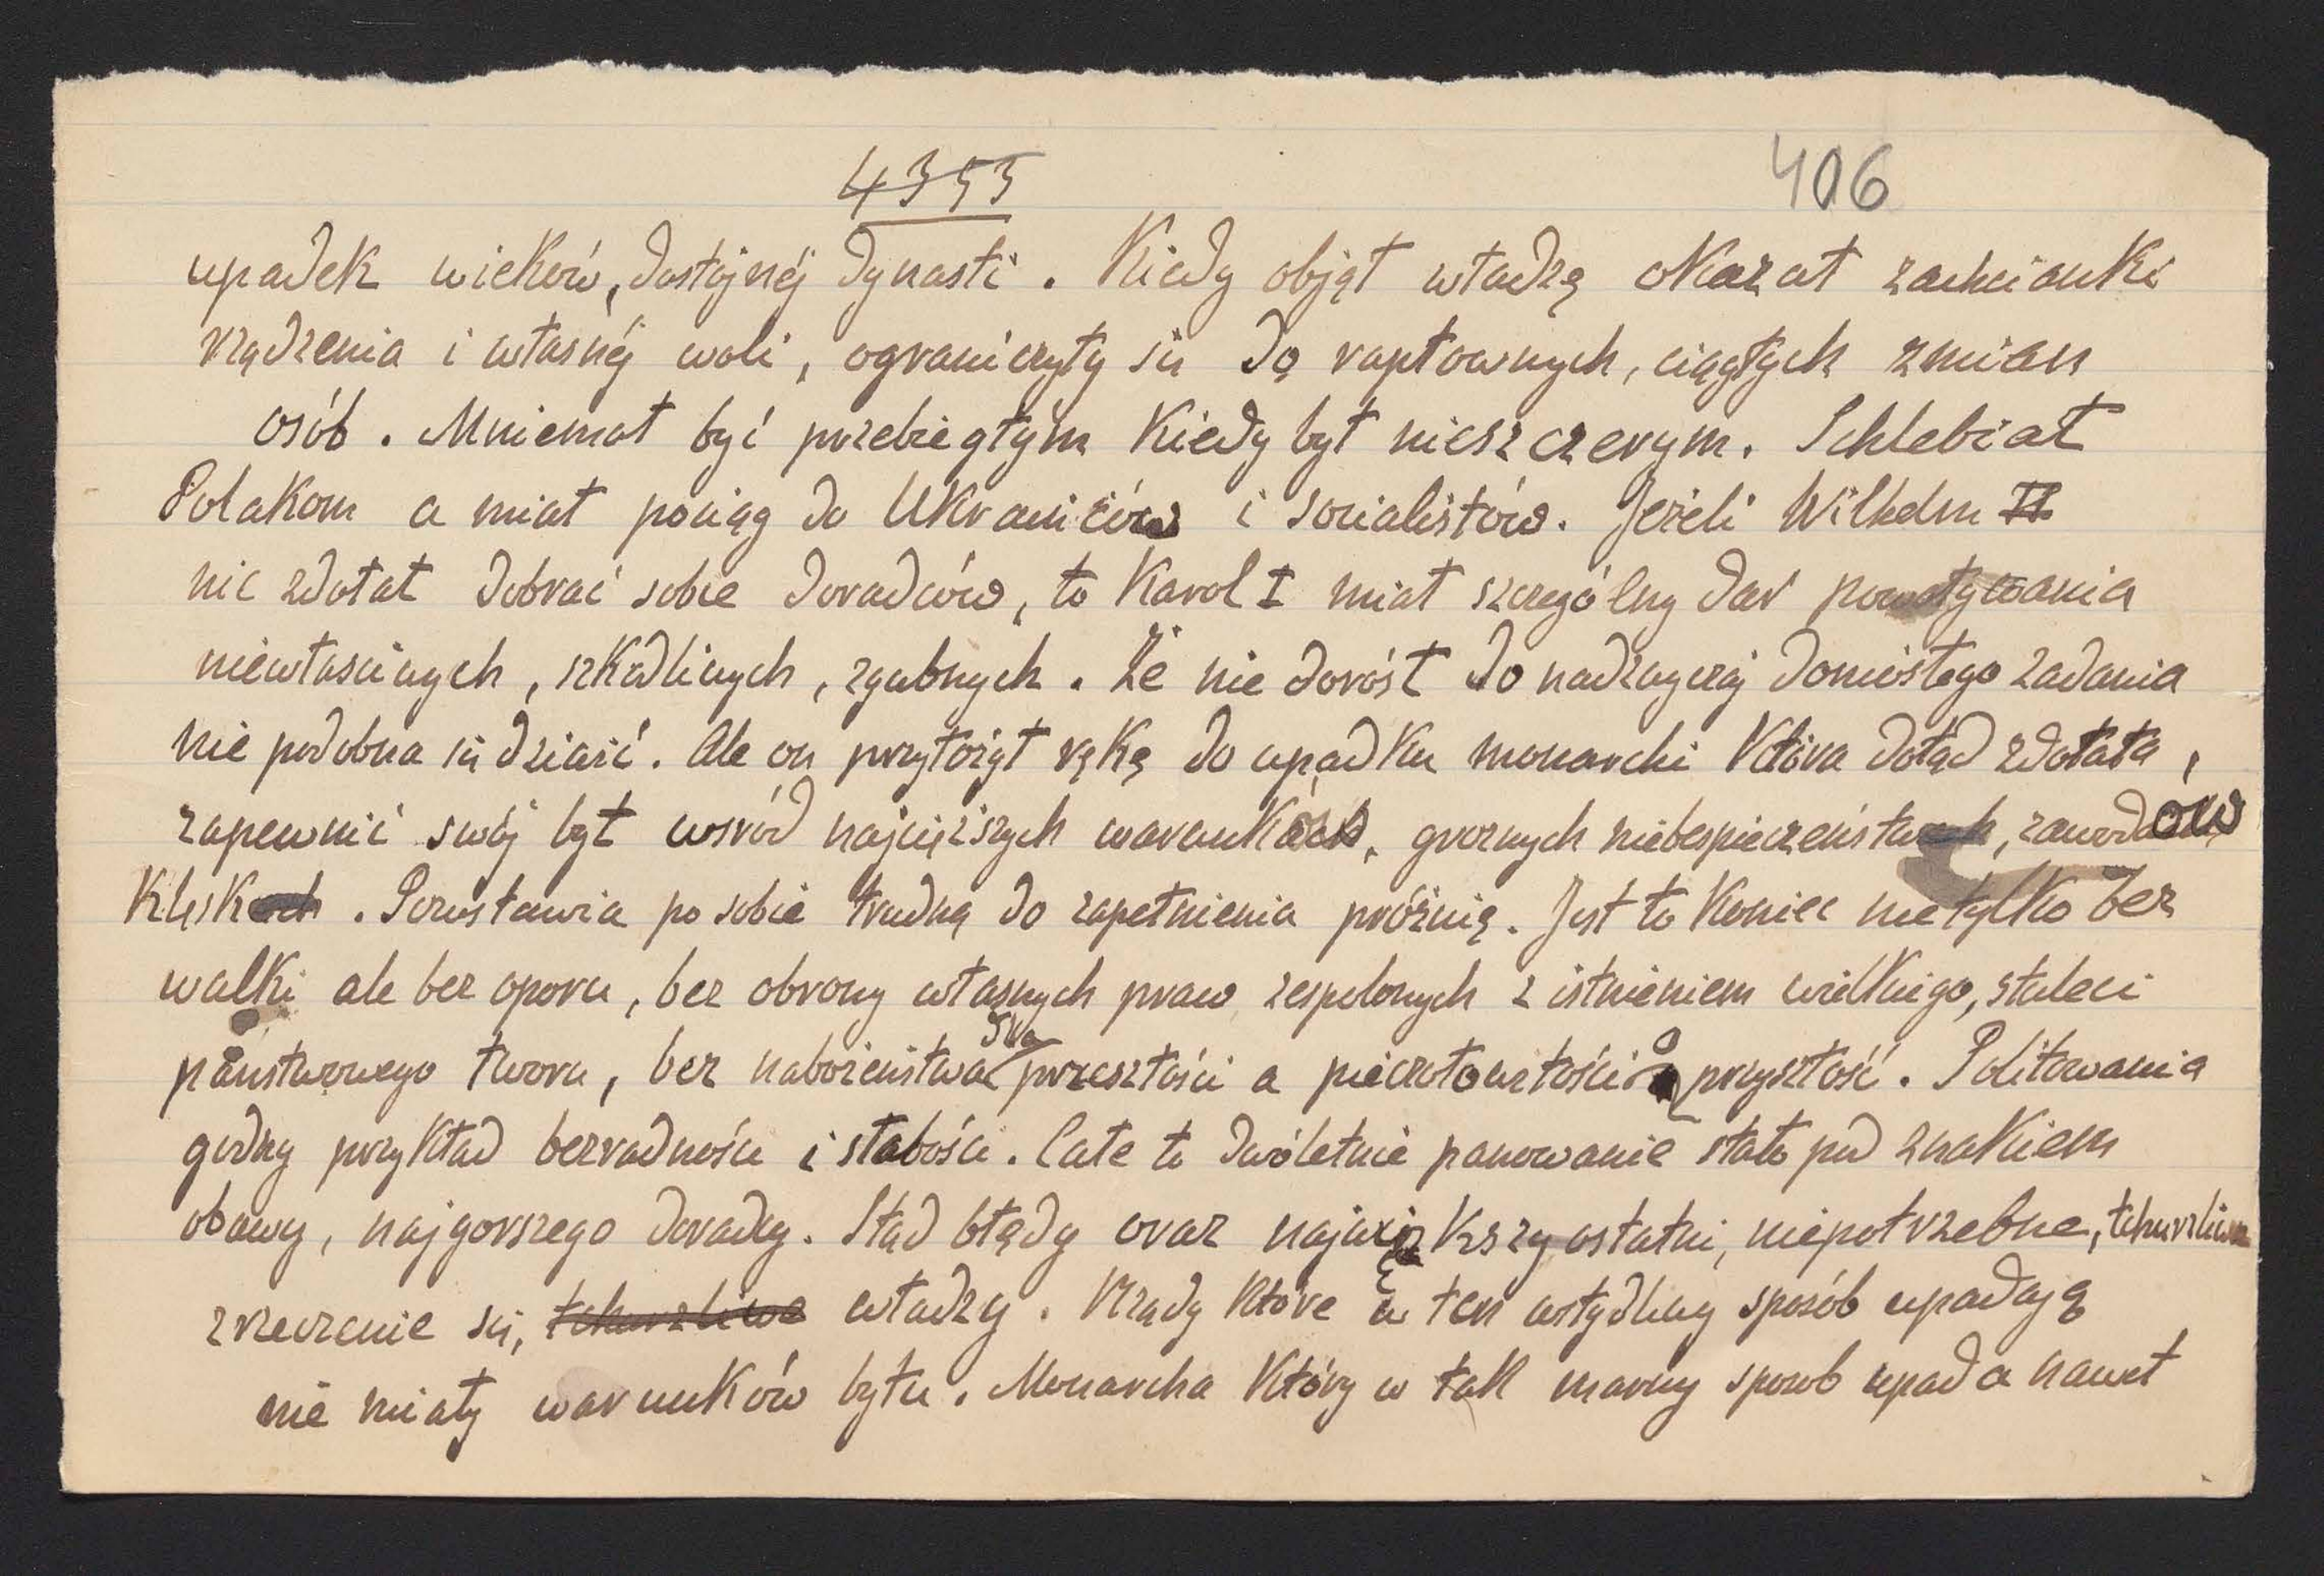 4353
406
upadek wieków, dostojnéj dynasti. Kiedy objął władzą okazał zachcianki
rządzenia i własnéj woli, ograniczyły się do raptownych, ciągłych zmian
osób. Mniemał być przebiegłym kiedy był nieszczerym. Schlebiał
Polakom a miał pociąg do Ukraińców i socialistów. Jeżeli Wilhelm II
nie zdołał dobrać sobie doradców, to Karol I miał szczególny dar powoływania
niewłasciwych, szkodliwych, zgubnych. Że nie dorósł do nadzwyczaj doniosłego zadania
nie podobna się dziwić. Ale on przyłożył rękę do upadku monarchi która dotąd zdołała,
zapewnić swój byt wsród najcięższych warunków, groznych niebespieczeństw, zawodów
klęsk. Pozostawia po sobie trudną do zapełnienia próżnię. Jest to koniec nietylko bez
walki ale bez oporu, bez obrony własnych praw zespolonych z istnieniem wielkiego, stuleci
państwowego tworu, bez nabożeństwa dla przeszłości a pieczołowitości o przyszłość. Politowania
godny przykład bezradności i słabości. Całe to dwóletnie panowanie stało pod znakiem
obawy, najgorszego doradcy. Stąd błędy oraz największy ostatni, niepotrzebne, tchurzliwe
zrzeczenie się, tchurzliwe władzy. Rządy które w ten wstydliwy sposób upadają
nie miały warunków bytu. Monarcha który w tak marny sposob upada nawet